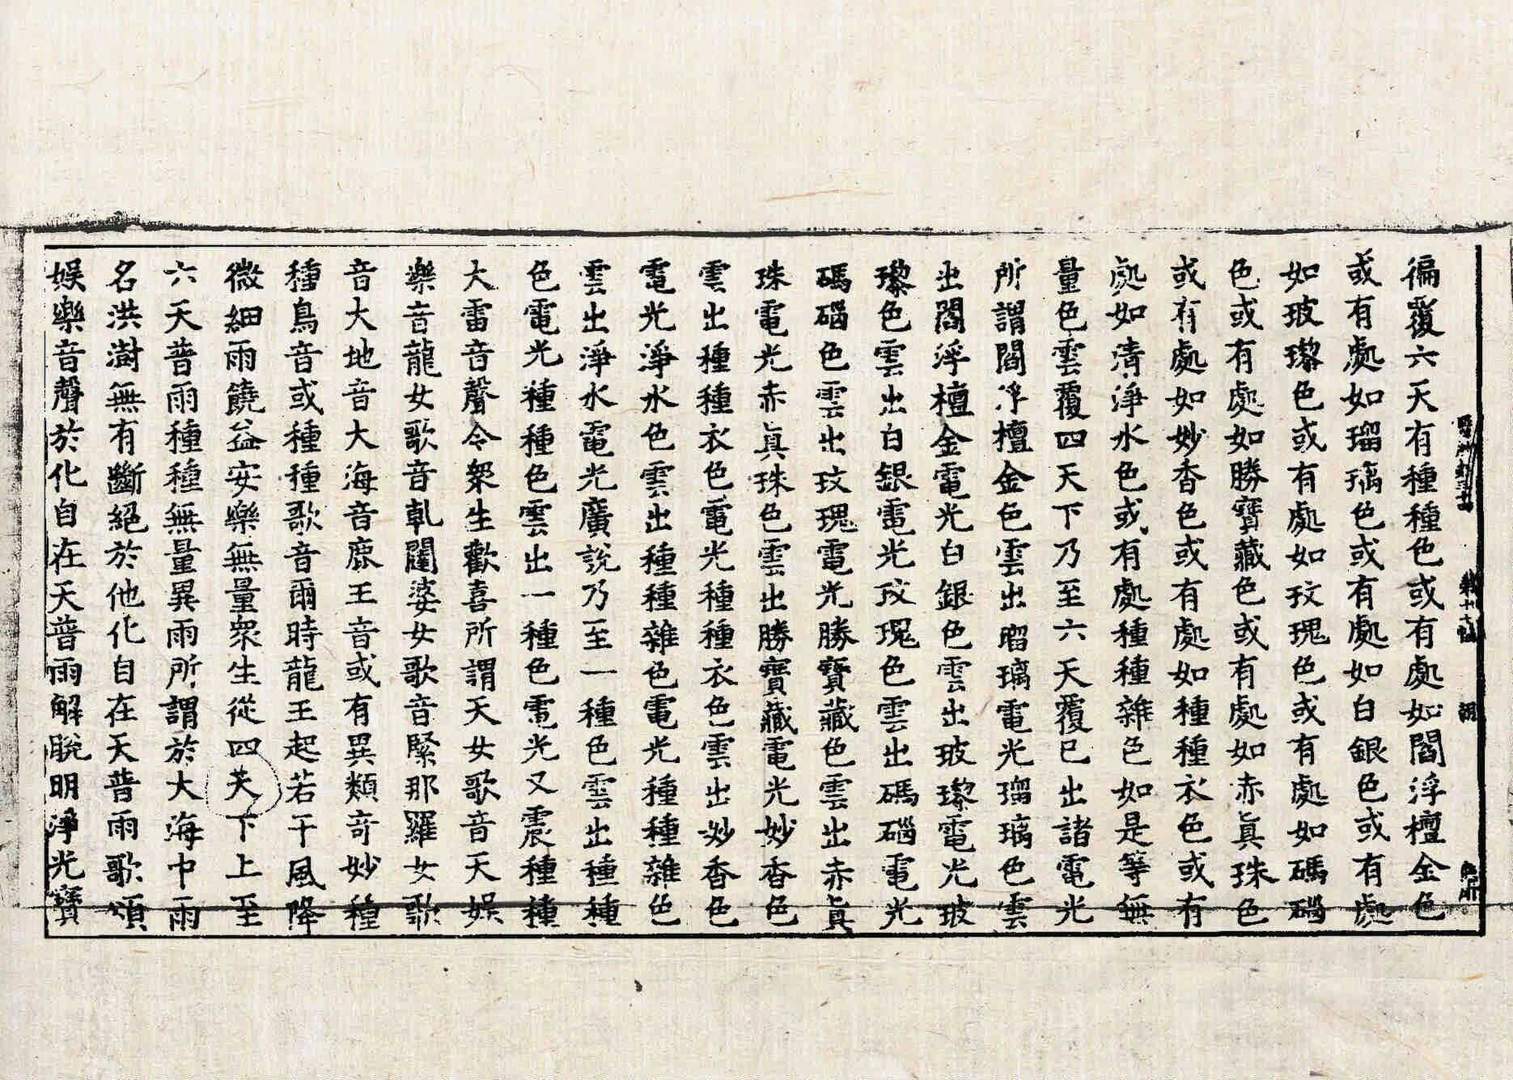 徧覆六天有種種色或有處如閻浮檀金色
或有處如瑠璃色或有處如白銀色或有處
如玻瓈色或有處如玟瑰色或有處如碼碯
色或有處如勝寶藏色或有處如赤眞珠色
或有處如妙香色或有處如種種衣色或有
處如清淨水色或有處種種雜色如是等無
量色雲覆四天下乃至六天覆已出諸電光
所謂閻浮檀金色雲出瑠璃電光瑠璃色雲
出閻浮檀金電光白銀色雲出玻瓈電光玻
瓈色雲出白銀電光玟瑰色雲出碼碯電光
碼碯色雲出玟瑰電光勝寶藏色雲出赤眞
珠電光赤眞珠色雲出勝寶藏電光妙香色
雲出種種衣色電光種種衣色雲出妙香色
電光淨水色雲出種種雜色電光種種雜色
雲出淨水電光廣說乃至一種色雲出種種
色電光種種色雲出一種色電光又震種種
大雷音聲令衆生歡喜所謂天女歌音天娛
樂音龍女歌音乹闥婆女歌音緊那羅女歌
音大地音大海音鹿王音或有異類奇妙種
種鳥音或種種歌音爾時龍王起若干風降
微細雨饒益安樂無量衆生從四天下上至
六天普雨種種無量異雨所謂於大海中雨
名洪澍無有斷絕於他化自在天普雨歌頌
娛樂音聲於化自在天普雨解脫明淨光寶